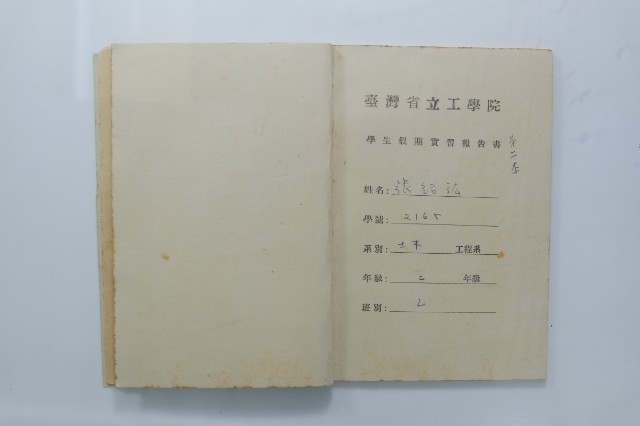 臺灣省立工學院
學生假期實習報告書
第二本
姓名:張紹弘
學號:2165
系別:土木工程系
年級:二年級
班別:乙